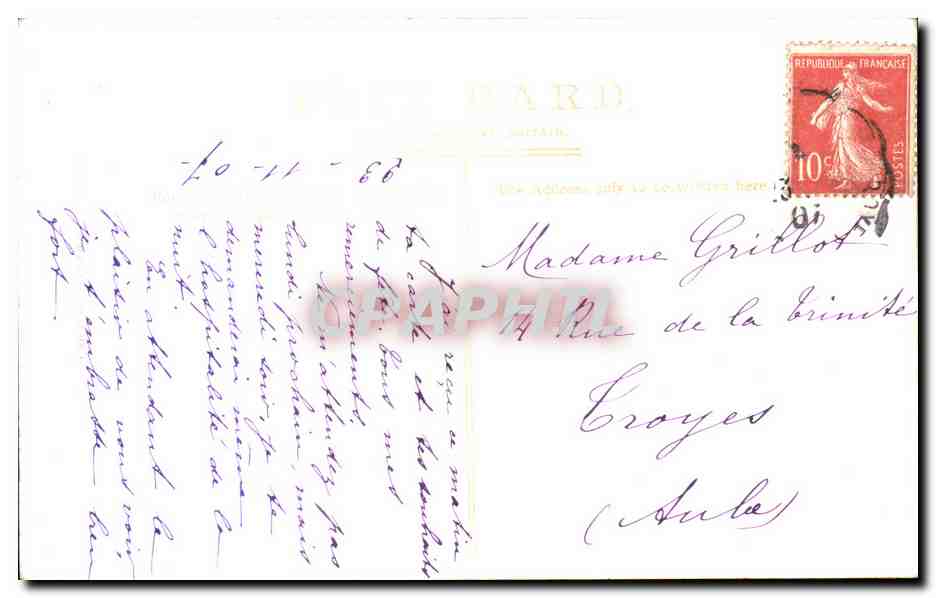 CARD
BRITAIN.
23 - 11 - 07
The Address only to be written here
REPUBLIQUE FRANÇAISE
10c
POSTES
07
Madame Grillot
14 Rue de la Trinité
Troyes
(Aube)
J'ai reçu ce matin
ta carte et tes souhaits
de fête, tous mes
remerciements
Ne m'attendez pas
lundi prochain, mais
mercredi soir, je te
demanderai même
l'hospitalité de la
nuit.
En attendant le
plaisir de vous voir,
je t'embrasse bien
fort
CPAPHIL